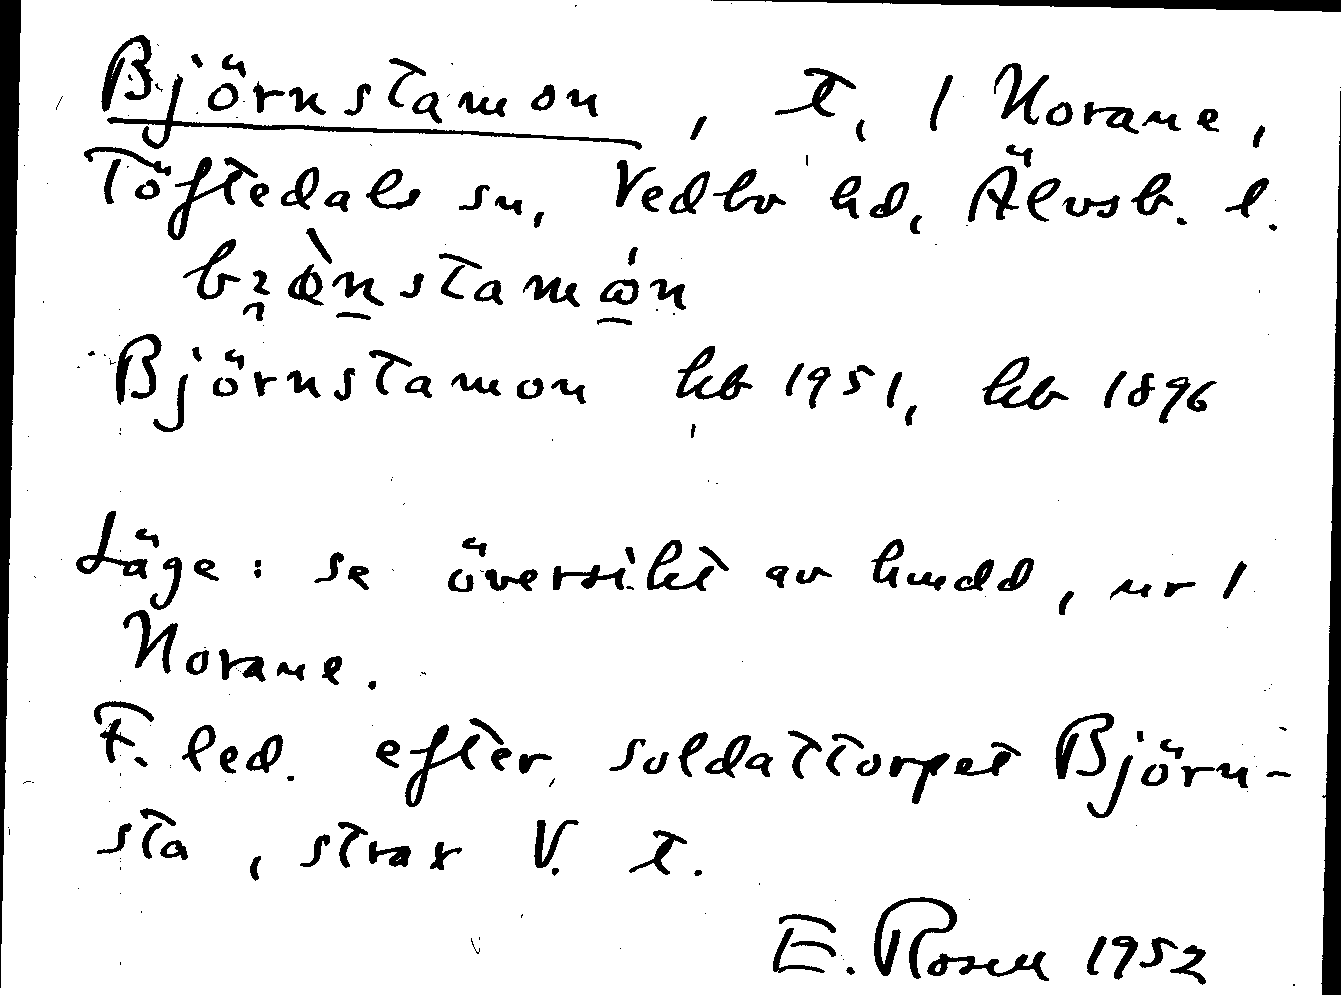 Björnstamon, t, 1 Norane,
Töftedals sn, Vedbo hd, Älvsb. l.
Björnstamon kb 1951, kb 1896
Läge: se översikt av hmdd, nr 1
Norane.
F. led. efter soldattorpet Björn-
sta, strax V. t.
E. Rosell 1952